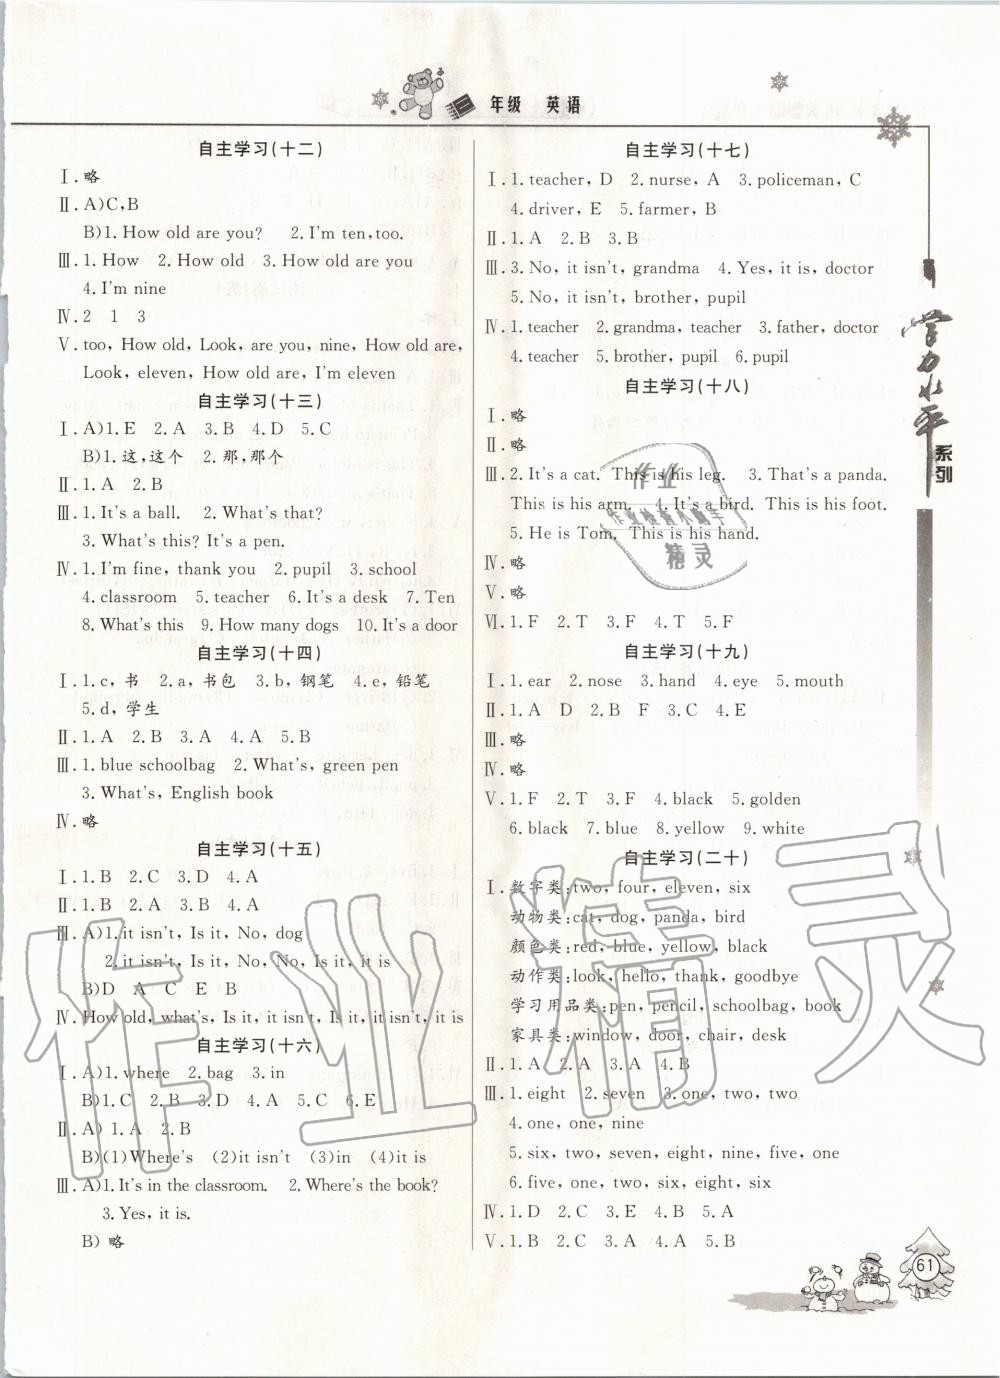 三年级 英语
自主学习(十二)
Ⅰ.略
Ⅱ.A)C,B
B)1. How old are you? 2. I'm ten,too.
Ⅲ.1. How 2. How old 3. How old are you
4. I'm nine
Ⅳ.2 1 3
Ⅴ. too, How old, Look, are you, nine, How old are,
Look, eleven, How old are, I'm eleven
自主学习(十三)
Ⅰ.A)1.E 2.A 3.B 4.D 5.C
B)1.这,这个 2.那,那个
Ⅱ.1.A 2.B
Ⅲ.1. It's a ball. 2. What's that?
3. What's this? It's a pen.
Ⅳ.1. I'm fine, thank you 2. pupil 3. school
4. classroom 5. teacher 6. It's a desk 7. Ten
8. What's this 9. How many dogs 10. It's a door
自主学习(十四)
Ⅰ.1.c,书 2.a,书包 3.b,钢笔 4.e,铅笔
5.d,学生
Ⅱ.1.A 2.B 3.A 4.A 5.B
Ⅲ.1. blue schoolbag 2. What's, green pen
3. What's, English book
Ⅳ.略
自主学习(十五)
Ⅰ.1.B 2.C 3.D 4.A
Ⅱ.1.B 2.A 3.B 4.A
Ⅲ.A)1. it isn't, Is it, No, dog
2. it isn't, Is it, No, No, Is it, it is
B)D A C E B
Ⅳ. How old, what's, Is it, it isn't, Is it, it isn't, it is
自主学习(十六)
Ⅰ.A)1. where 2. bag 3. in
B)1.C 2.B 3.D 4.A 5.C 6.E
Ⅱ.A) 1.A 2.B
B)(1)Where's (2)it isn't (3)in (4)it is
Ⅲ.A)1. It's in the classroom. 2. Where's the book?
3. Yes, it is.
B) 略
自主学习(十七)
Ⅰ.1. teacher, D 2. nurse, A 3. policeman, C
4. driver, E 5. farmer, B
Ⅱ.1.A 2.B 3.B
Ⅲ.3. No, it isn't, grandma 4. Yes, it is, doctor
5. No, it isn't, brother, pupil
Ⅳ.1. teacher 2. grandma, teacher 3. father, doctor
4. teacher 5. brother, pupil 6. pupil
自主学习(十八)
Ⅰ.略
Ⅱ.略
Ⅲ.2. It's a cat. This is his leg. 3. That's a panda.
This is his arm. 4. It's a bird. This is his foot.
5. He is Tom. This is his hand.
Ⅳ.略
Ⅴ.略
Ⅵ.1.F 2.T 3.F 4.T 5.F
自主学习(十九)
Ⅰ.1. ear 2. nose 3. hand 4. eye 5. mouth
Ⅱ.1.A D 2.B F 3.C 4.E
Ⅲ.略
Ⅳ.略
Ⅴ.1.F 2.T 3.F 4. black 5. golden
6. black 7. blue 8. yellow 9. white
自主学习(二十)
Ⅰ.数字类:two, four, eleven, six
动物类:cat, dog, panda, bird
颜色类:red, blue, yellow, black
动作类:look, hello, thank, goodbye
学习用品类:pen, pencil, schoolbag, book
家具类:window, door, chair, desk
Ⅱ.1.A 2.A 3.A 4.A
Ⅲ.1. eight 2. seven 3. one, two, two
4. one, one, nine
5. six, two, seven, eight, nine, five, one
6. five, one, two, six, eight, six
Ⅳ.1.D 2.C 3.E 4.B 5.A
Ⅴ.1.B 2.C 3.A 4.A 5.B
学力水平
系列
作业
作业检查小助手
精灵
作业精灵
61